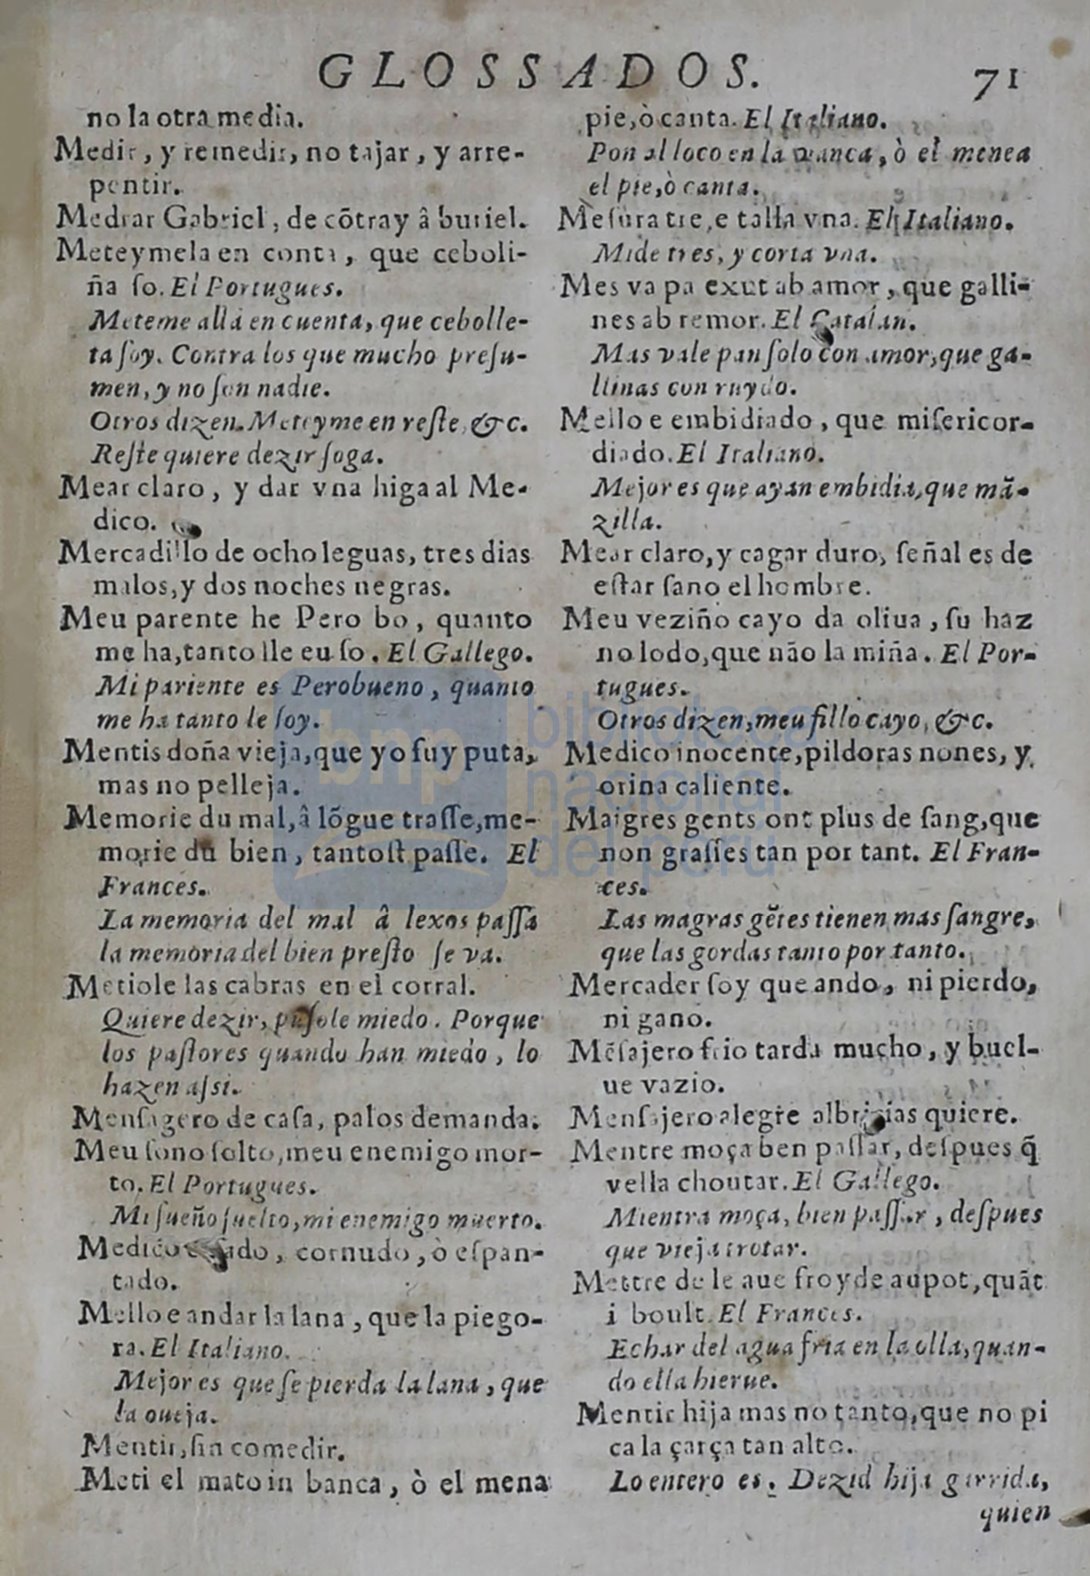 GLOSSADOS. 71
no la otra media.
Medir, y remedir, no tajar, y arre-
pentir.
Medrar Gabriel, de cõtray â buriel.
Meteymela en conta, que ceboli-
ña ſo. El Portugues.
Meteme allá en cuenta, que cebolle-
ta ſoy. Contra los que mucho preſu-
men, y no ſon nadie.
Otros dizen. Meteyme en reſte, &c.
Reſte quiere dezir ſoga.
Mear claro, y dar vna higa al Me-
dico.
Mercadillo de ocho leguas, tres dias
malos, y dos noches negras.
Meu parente he Pero bo, quanto
me ha, tanto lle eu ſo. El Gallego.
Mi pariente es Perobueno, quanto
me ha tanto le ſoy.
Mentis doña vieja, que yo fuy puta,
mas no pelleja.
Memorie du mal, â lõgue traſſe, me-
morie du bien, tantoſt paſſe. El
Frances.
La memoria del mal â lexos paſſa
la memoria del bien preſto ſe va.
Metiole las cabras en el corral.
Quiere dezir, puſole miedo. Porque
los paſtores quando han miedo, lo
hazen aſsi.
Menſagero de caſa, palos demanda.
Meu ſono ſolto, meu enemigo mor-
to. El Portugues.
Mi ſueño ſuelto, mi enemigo muerto.
Medico, cornudo, ò eſpan-
tado.
Mello e andar la lana, que la piego-
ra. El Italiano.
Mejor es que ſe pierda la lana, que
la oueja.
Mentir, ſin comedir.
Meti el mato in banca, ò el mena
pie, ò canta. El Italiano.
Pon al loco en la vanca, ò el menea
el pie, ò canta.
Meſura tre, e talla vna. El Italiano.
Mide tres, y corta vna.
Mes va pa exut ab amor, que galli-
nes ab remor. El Catalan.
Mas vale pan ſolo con amor, que ga-
llinas con ruydo.
Mello e embidiado, que miſericor-
diado. El Italiano.
Mejor es que ayan embidia, que mã-
zilla.
Mear claro, y cagar duro, ſeñal es de
eſtar ſano el hombre.
Meu veziño cayo da oliua, ſu haz
no lodo, que não la miña. El Por-
tugues.
Otros dizen, meu fillo cayo, &c.
Medico inocente, pildoras nones, y
orina caliente.
Maigres gents ont plus de ſang, que
non graſſes tan por tant. El Fran-
ces.
Las magras gẽtes tienen mas ſangre,
que las gordas tanto por tanto.
Mercader ſoy que ando, ni pierdo,
ni gano.
Mẽſajero frio tarda mucho, y buel-
ue vazio.
Menſajero alegre albricias quiere.
Mentre moça ben paſſar, deſpues q̃
vella choutar. El Gallego.
Mientra moça, bien paſſar, deſpues
que vieja trotar.
Mettre de le aue froyde au pot, quãt
i boult. El Frances.
Echar del agua fria en la olla, quan-
do ella hierue.
Mentir hija mas no tanto, que no pi
ca la çarça tan alto.
Lo entero es. Dezid hija garrida,
quien
bnp biblioteca
nacional
del perú